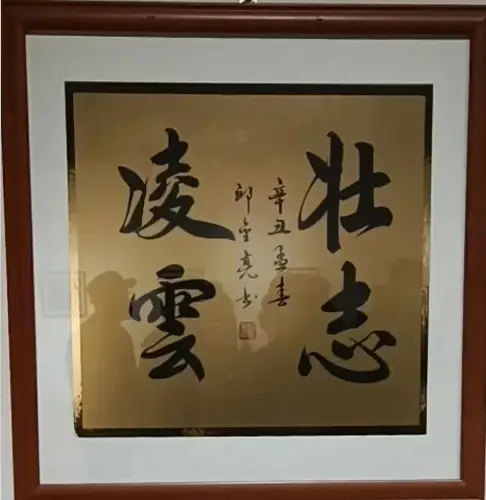 壮志
辛丑孟春
邱金亮书
凌雲